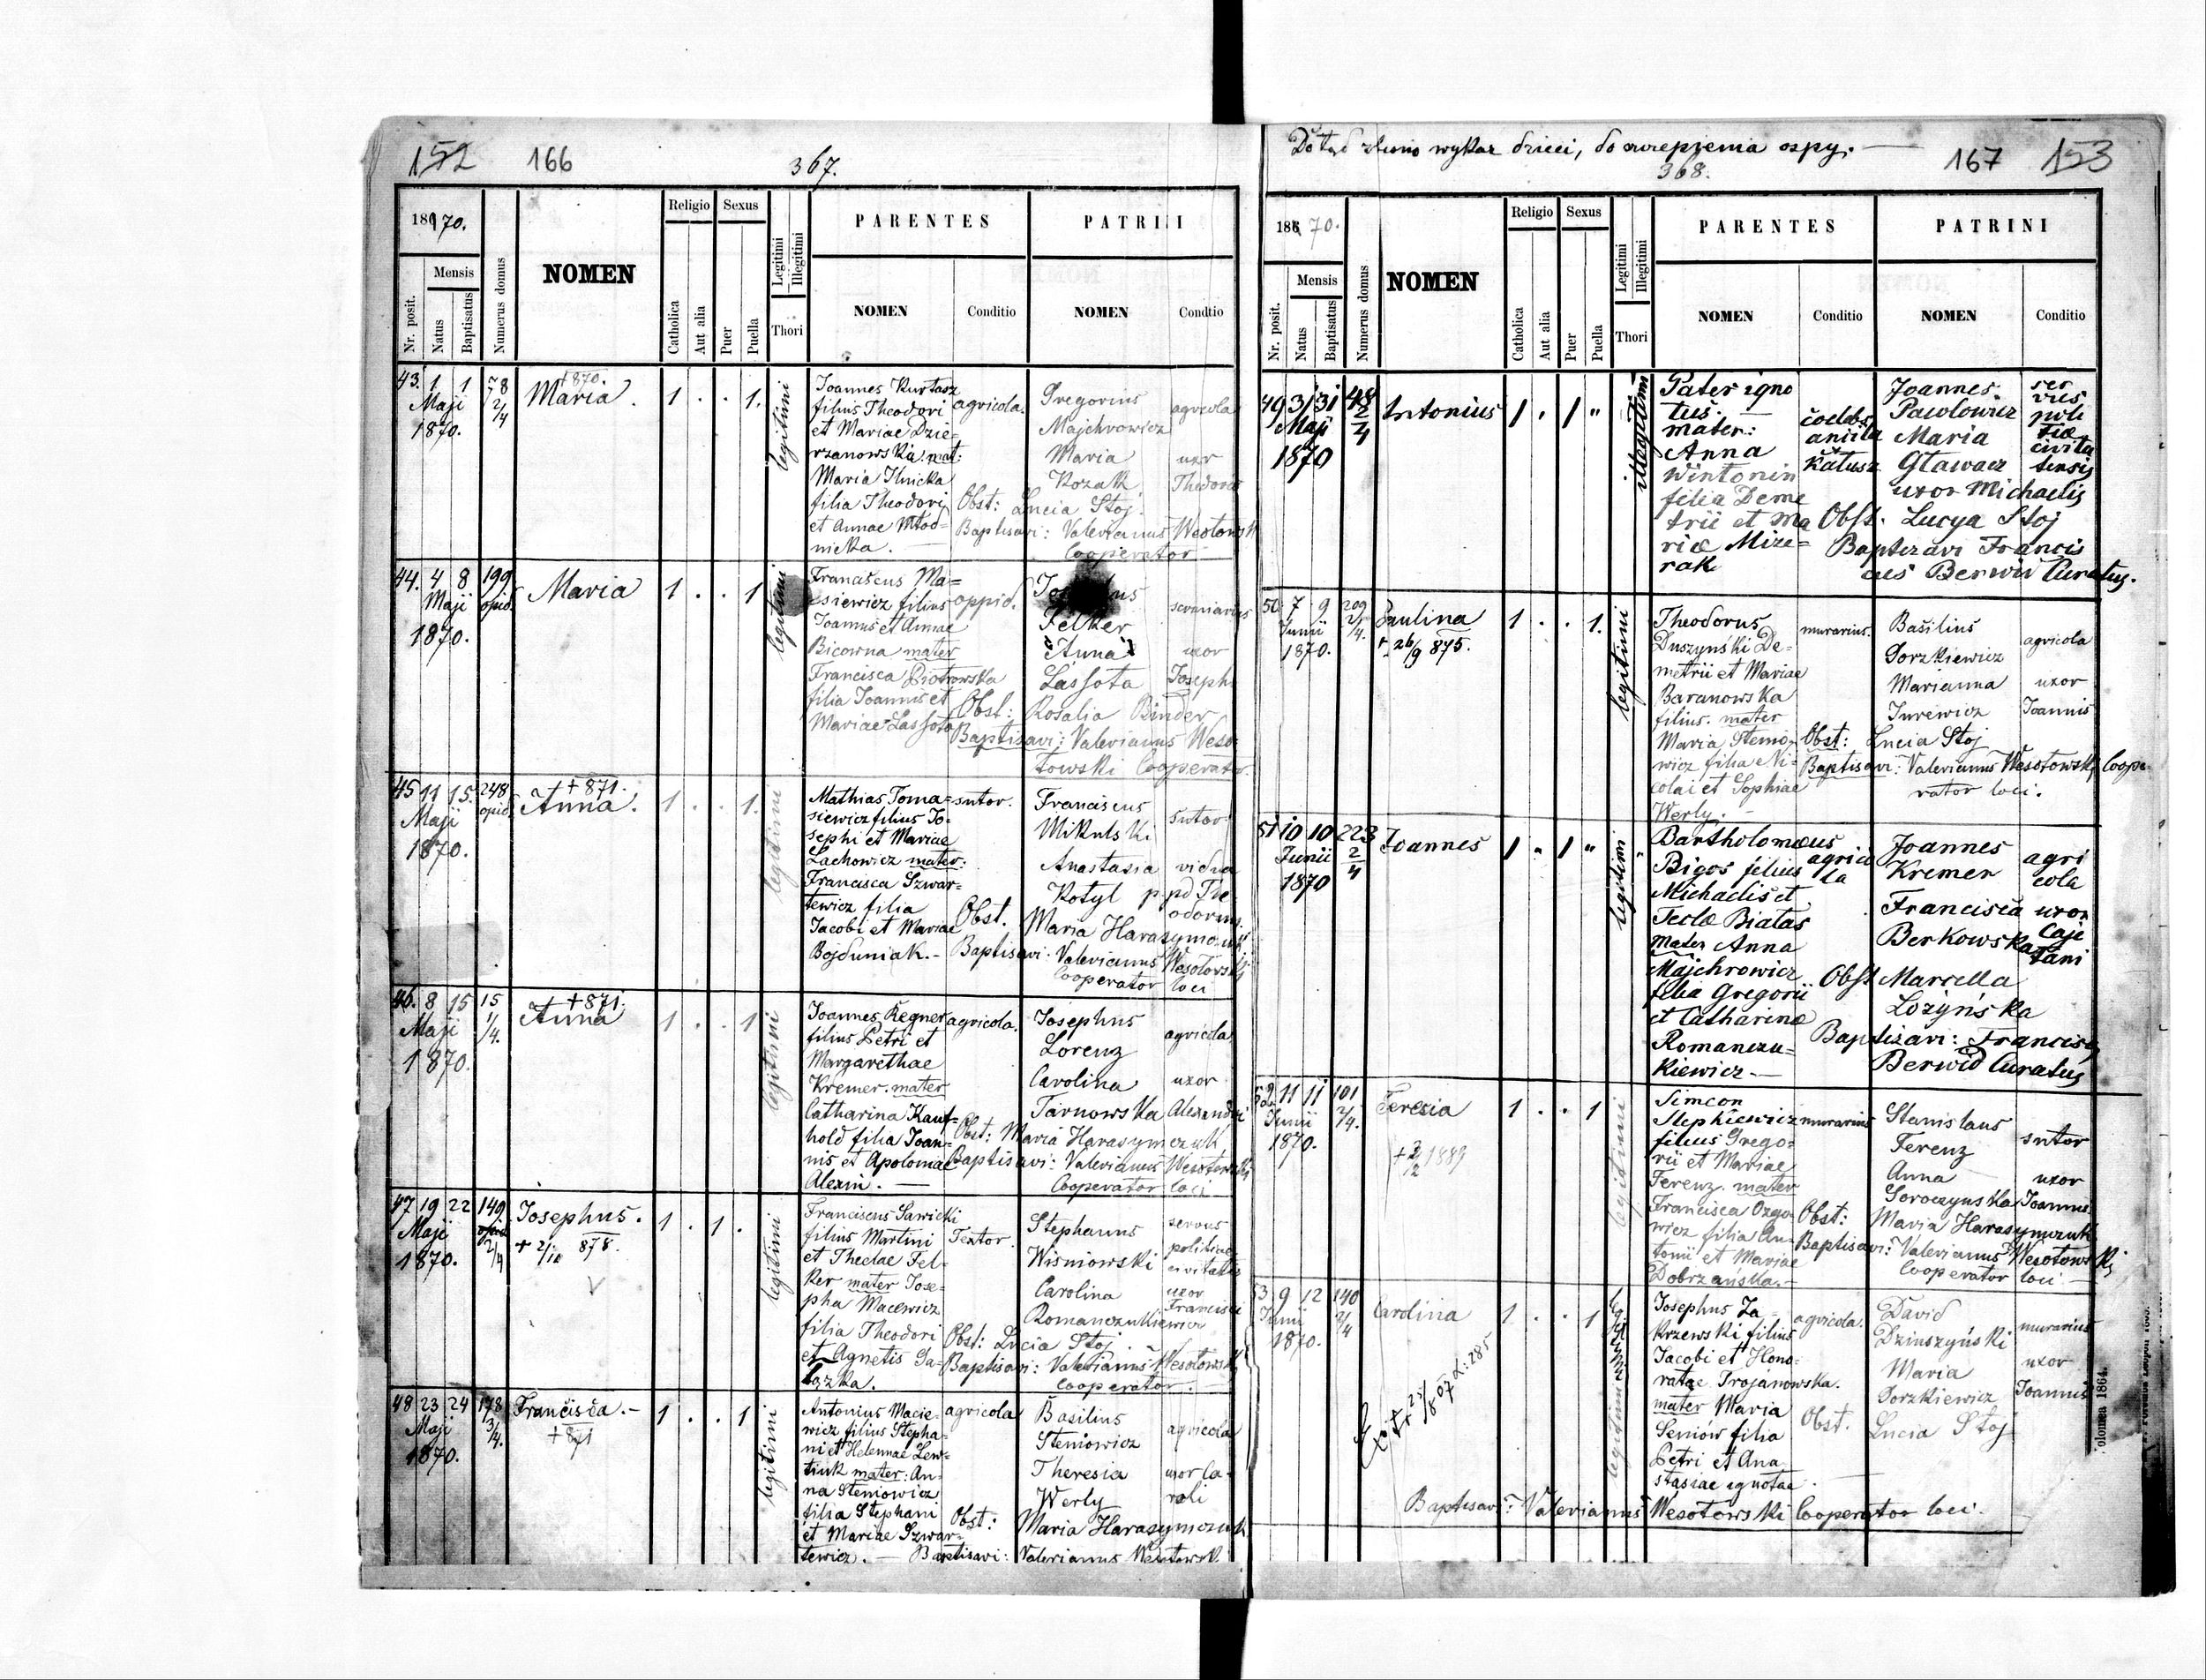 152 166 367.
1870.
Nr. posit.
Mensis
Natus
Baptisatus
Numerus domus
NOMEN
Religio
Catholica
Aut alia
Sexus
Puer
Puella
Legitimi
Illegitimi
Thori
PARENTES
NOMEN
Conditio
PATRINI
NOMEN
Condtio
43. 1 1 78 2/4
Maji
1870.
+870.
Maria.
1 . . 1.
legitimi
Joannes Kurtasz
filius Theodori
et Mariae Dzie=
rzanowska. mat:
Maria Ilnicka
filia Theodori
et Annae Młod=
nicka. —
agricola.
Gregorius
Majchrowicz
agricola
Maria
Kozak
uxor
Theodori
Obst: Lucia Stoj.
Baptisavi: Valerianus Wesołowski
Cooperator
44. 4 8 199
opid.
Maji
1870.
Maria
1 . . 1
legitimi
Franciscus Ma=
esiewicz filius
Joannis et Annae
Bicowna mater
Francisca Piotrowska
filia Joannis et
Mariae Lassota
oppid.
Felker
Anna
Lassota
uxor
Josephi
Obst: Rosalia Binder
Baptisavi: Valerianus Weso=
łowski Cooperator.
45 11 15. 248
opid.
Maji
1870.
+871.
Anna.
1 . . 1.
legitimi
Mathias Toma=
siewicz filius Jo=
sephi et Mariae
Lachowicz mater:
Francisca Szwar=
tewicz filia
Jacobi et Mariae
Bojduniak. -
sutor.
Franciscus
Mikulski
sutor
Anastasia
Kotyl
vidua
Obst. Maria Harasymczuk
Baptisavi: Valerianus Wesołowski
Cooperator loci
46. 8 15 15 1/4.
Maji
1870.
+871.
Anna
1 . . 1
legitimi
Joannes Regner
filius Petri et
Margarethae
Kremer. mater
Catharina Kauf=
hold filia Joan=
nis et Apoloniae
Alexin. —
agricola.
Josephus
Lorenz
agricola
Carolina
Tarnowska
uxor
Alexandri
Obst: Maria Harasymczuk
Baptisavi: Valerianus Wesołowski
Cooperator loci
47 19 22 149
2/4
Maji
1870.
Josephus.
+ 2/10 878.
1 . 1 .
legitimi
Franciscus Sawicki
filius Martini
et Theclae Fel=
ker mater Jose=
pha Macewicz
filia Theodori
et Agnetis
Textor.
Stephanus
Wisniowski
servus
politiae
civitatis
Carolina
Romanczukiewicz
uxor
Francisci
Obst: Lucia Stoj.
Baptisavi: Valerianus Wesołowski
Cooperator.
48 23 24 178
3/4.
Maji
1870.
Francisca. -
+871
1 . . 1
legitimi
Antonius Macie=
wicz filius Stepha=
ni et Helenae Lew=
tiuk mater: An=
na Steniowicz
filia Stephani
et Mariae Szwar=
tewicz. —
agricola
Basilius
Steniowicz
agricola
Theresia
Werly
uxor Ca=
roli
Obst: Maria Harasymczuk
Baptisavi: Valerianus Wesołowski
Dotąd złożono wykaz dzieci, do szczepienia ospy. —
368. 167 153
1870.
Nr. posit.
Mensis
Natus
Baptisatus
Numerus domus
NOMEN
Religio
Catholica
Aut alia
Sexus
Puer
Puella
Legitimi
Illegitimi
Thori
PARENTES
NOMEN
Conditio
PATRINI
NOMEN
Conditio
49 31 31 48
2/4
Maji
1870
Antonius
1 . 1 "
illegitimi
Pater igno
tus. —
mater:
Anna
Wintonin
filia Deme
trii et Ma
riae Mize=
rak
Joannes
Pawlowicz
ser
vus
poli
tiae
civita
tensis
Maria
Gławacz
uxor Michaelis
Obst. Lucya Stoj
Baptizavi Francis
cus Berwid Curatus.
50. 7 9 209
2/4.
Junii
1870.
Paulina
+ 26/9 875.
1 . . 1.
legitimi
Theodorus
Duszyński De=
metrii et Mariae
Baranowska
filius. mater
Maria Stenio=
wicz filia Ni=
colai et Sophiae
Werly. —
murarius.
Basilius
Gorzkiewicz
agricola
Marianna
Jurewicz
uxor
Joannis
Obst: Lucia Stoj
Baptisavi: Valerianus Wesołowski Coope=
rator loci.
51 10 10 223
2/4
Junii
1870
Joannes
1 " 1 "
legitimi
Bartholomæus
Bigos filius
Michaelis et
Teclæ Białas
Mater Anna
Majchrowicz
filia Gregorii
et Catharinæ
Romanczu=
kiewicz —
agrico
la
Joannes
Kremer
agri
cola
Francisca
Berkowska
uxor
Caje
tani
Obst Marcella
Lozyńska
Baptizavi: Francisc
Berwid Curatus
52 11 11 101
2/4.
Junii
1870.
Teresia
+ 3/2 1889
1 . . 1
legitimi
Simeon
Stephkiewicz
filius Grego=
rii et Mariae
Ferenz. mater
Francisca Ozgo=
wicz filia An=
tonii et Mariae
Dobrzańska. —
murarius
Stanislaus
Ferenz
sutor
Anna
Soroczynska
uxor
Joannis
Obst: Maria Harasymczuk
Baptisavi: Valerianus Wesołowski
Cooperator loci —
53 9 12 140
2/4
Junii
1870.
Carolina
1 . . 1
legitimi
Josephus Za=
krzewski filius
Jacobi et Hono=
ratae Trojanowska.
mater Maria
Seniów filia
Petri et Ana
stasiae ignotae.
agricola.
David
Dziuszyński
murarius
Maria
Gorzkiewicz
uxor
Joannis
Obst. Lucia Stoj
Baptisavi: Valerianus Wesołowski Cooperator loci.
olomea 1864.